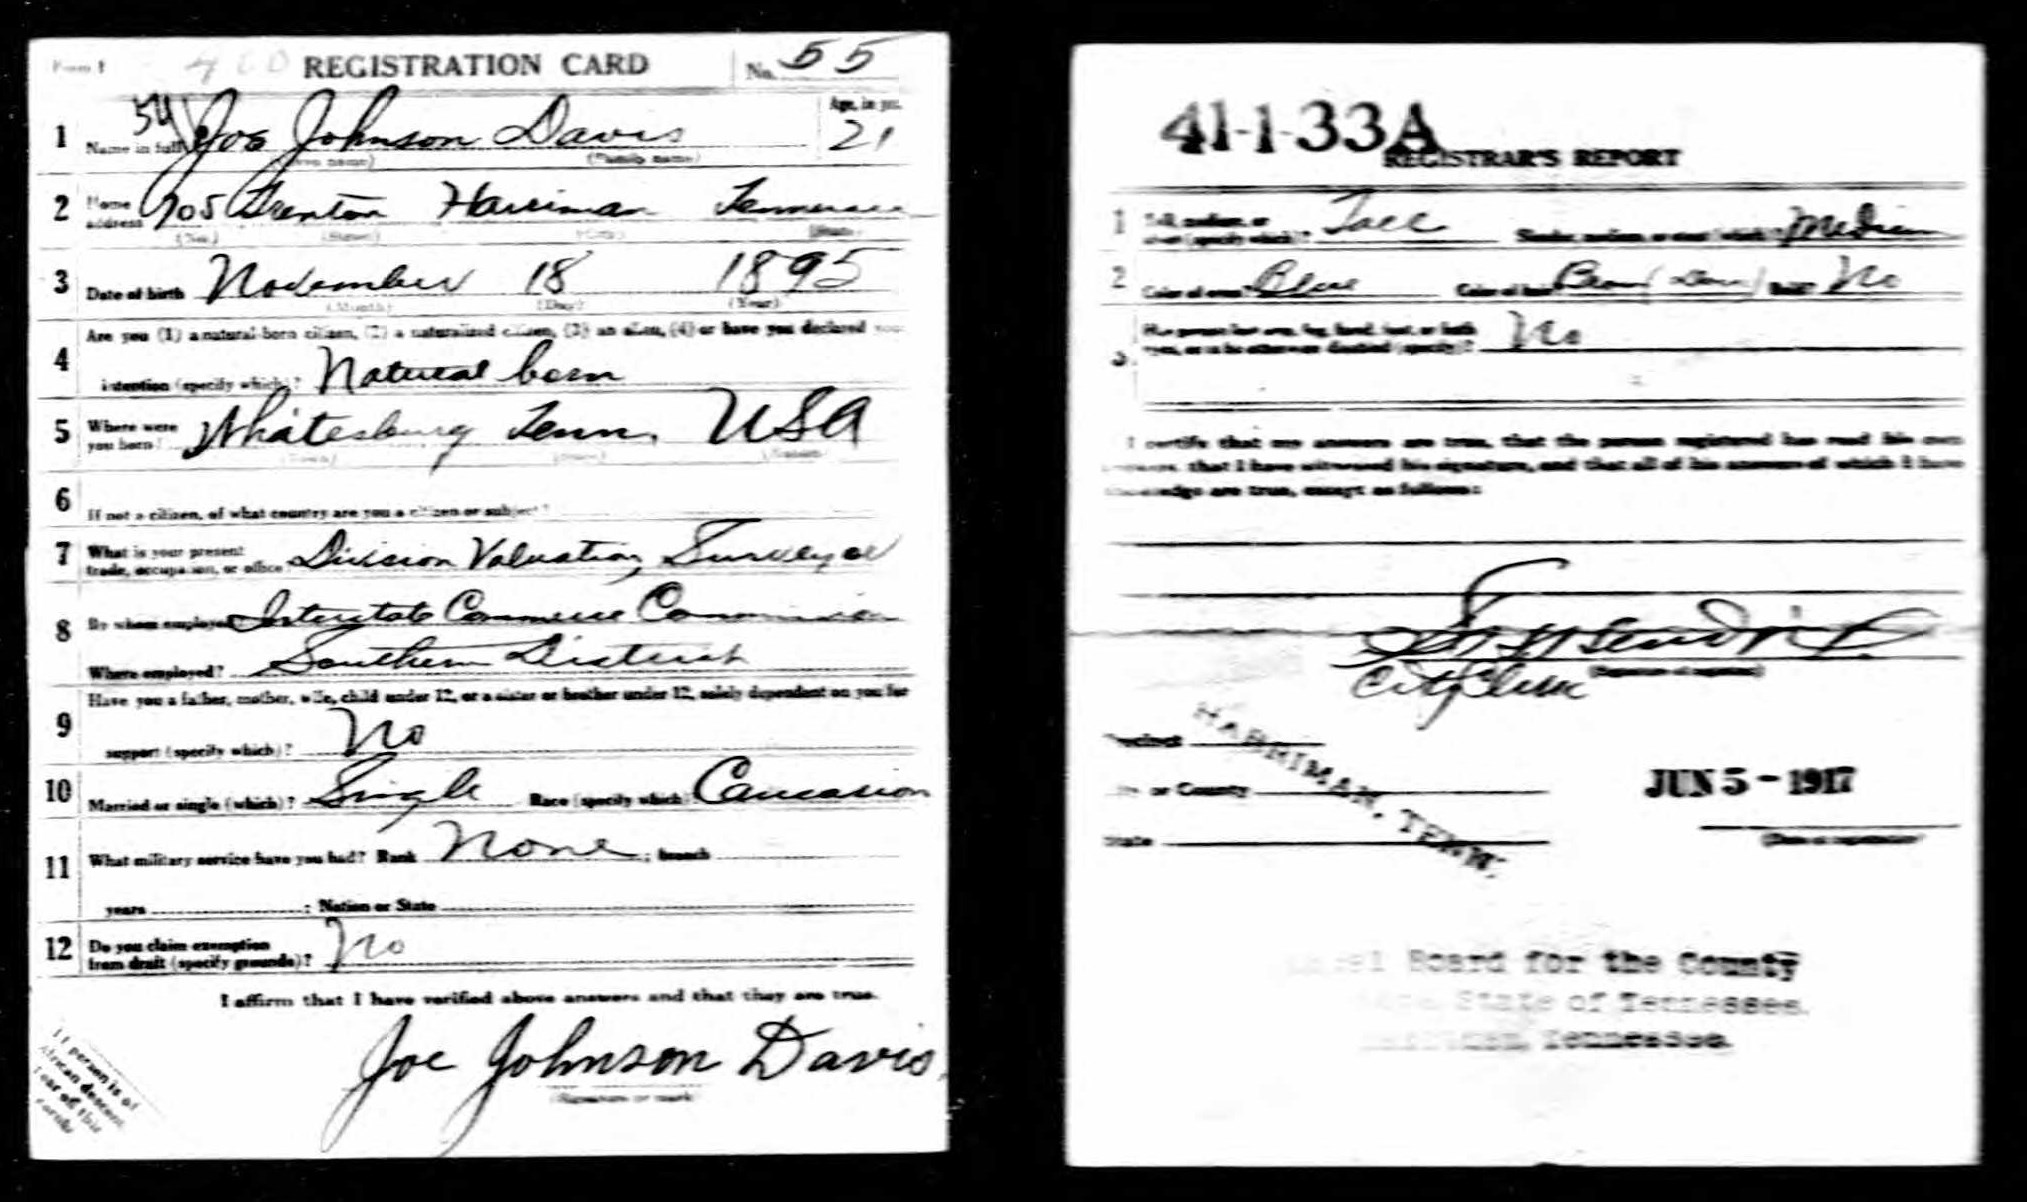 Form 1 REGISTRATION CARD No. 55
54 Age, in yrs.
1 Name in full Joe Johnson Davis 21
(Given name) (Family name)
2 Home address 705 Trenton Harriman Tennessee
(No.) (Street) (City) (State)
3 Date of birth November 18 1895
(Month) (Day) (Year)
Are you (1) a natural-born citizen, (2) a naturalized citizen, (3) an alien, (4) or have you declared your
4 intention (specify which)? Natural born
5 Where were you born? Whitesburg Tenn. USA
(Town) (State) (Nation)
6 If not a citizen, of what country are you a citizen or subject?
7 What is your present trade, occupation, or office Division Valuation Surveyor
8 By whom employed Interstate Commerce Commission
Where employed? Southern District
Have you a father, mother, wife, child under 12, or a sister or brother under 12, solely dependent on you for
9 support (specify which)? No
10 Married or single (which)? Single Race (specify which) Caucasion
11 What military service have you had? Rank None ; branch
years ; Nation or State
12 Do you claim exemption
from draft (specify grounds)? No
I affirm that I have verified above answers and that they are true.
Joe Johnson Davis.
(Signature or mark)
If person is of
African descent
tear off this
corner
41-1-33A
REGISTRAR'S REPORT
1 Tall, medium, or short (specify which)? Tall Slender, medium, or stout (which)? Medium
2 Color of eyes? Blue Color of hair? Brown Bald? No
3 Has person lost arm, leg, hand, foot, or both
eyes, or is he otherwise disabled (specify)? No
I certify that my answers are true, that the person registered has read his own
answers, that I have witnessed his signature, and that all of his answers of which I have
knowledge are true, except as follows:
(Signature of registrar)
City Clerk
Precinct
City or County
State
HARRIMAN, TENN.
JUN 5 - 1917
(Date of registration)
Local Board for the County
State of Tennessee.
Harriman, Tennessee.